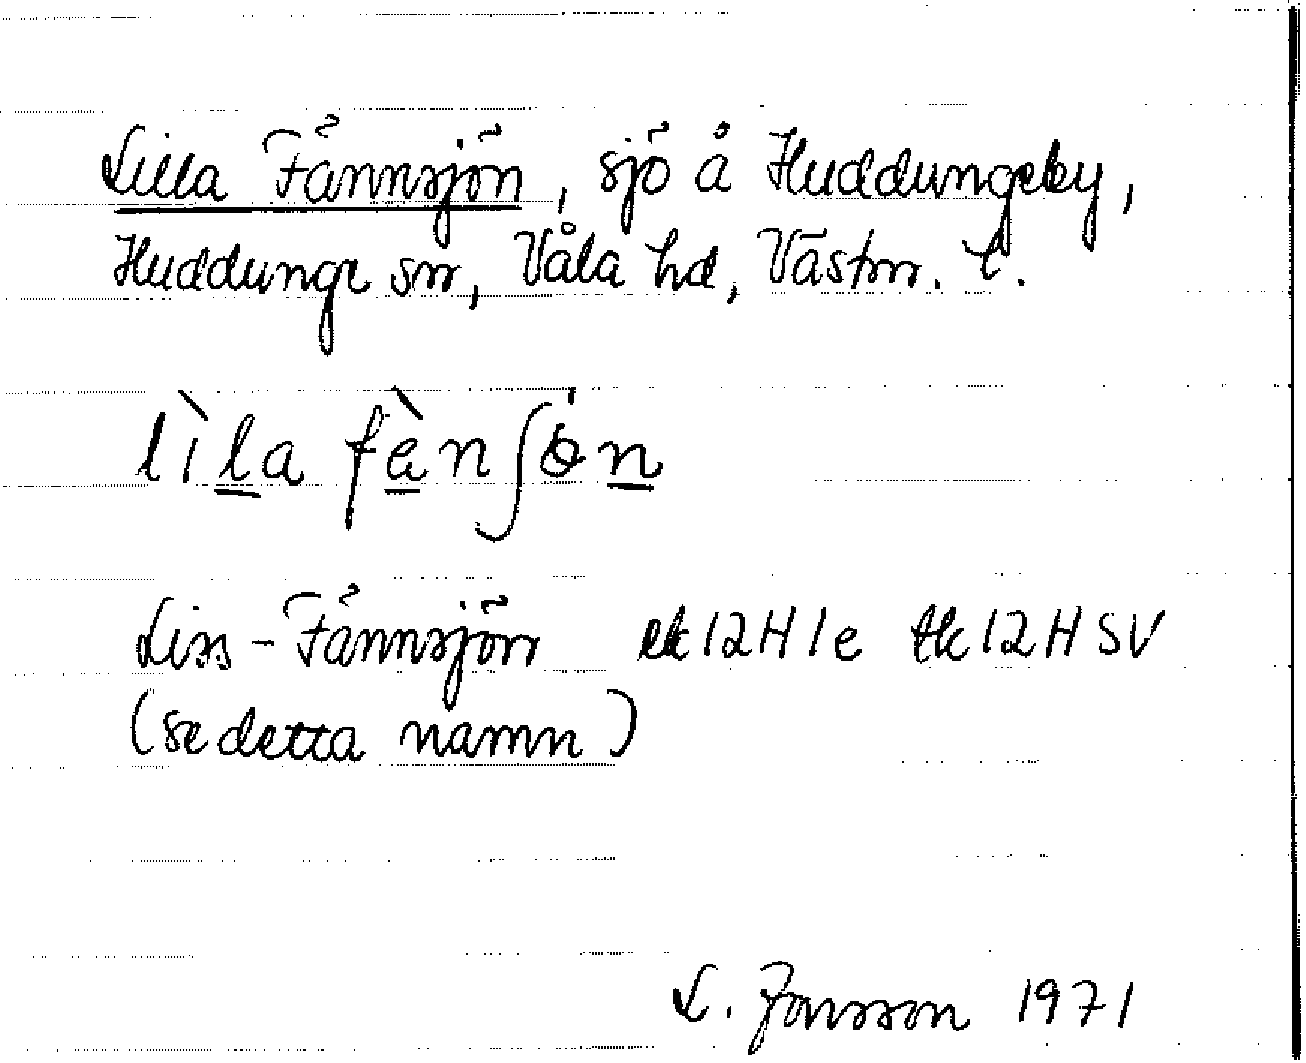 Lilla Fännsjön, sjö å Huddungeby,
Huddunge sn, Våla hd, Västm. l.
lìla fànʃön
Liss-Fännsjön ek 12H1e tk 12H SV
(se detta namn)
L. Jonsson 1971